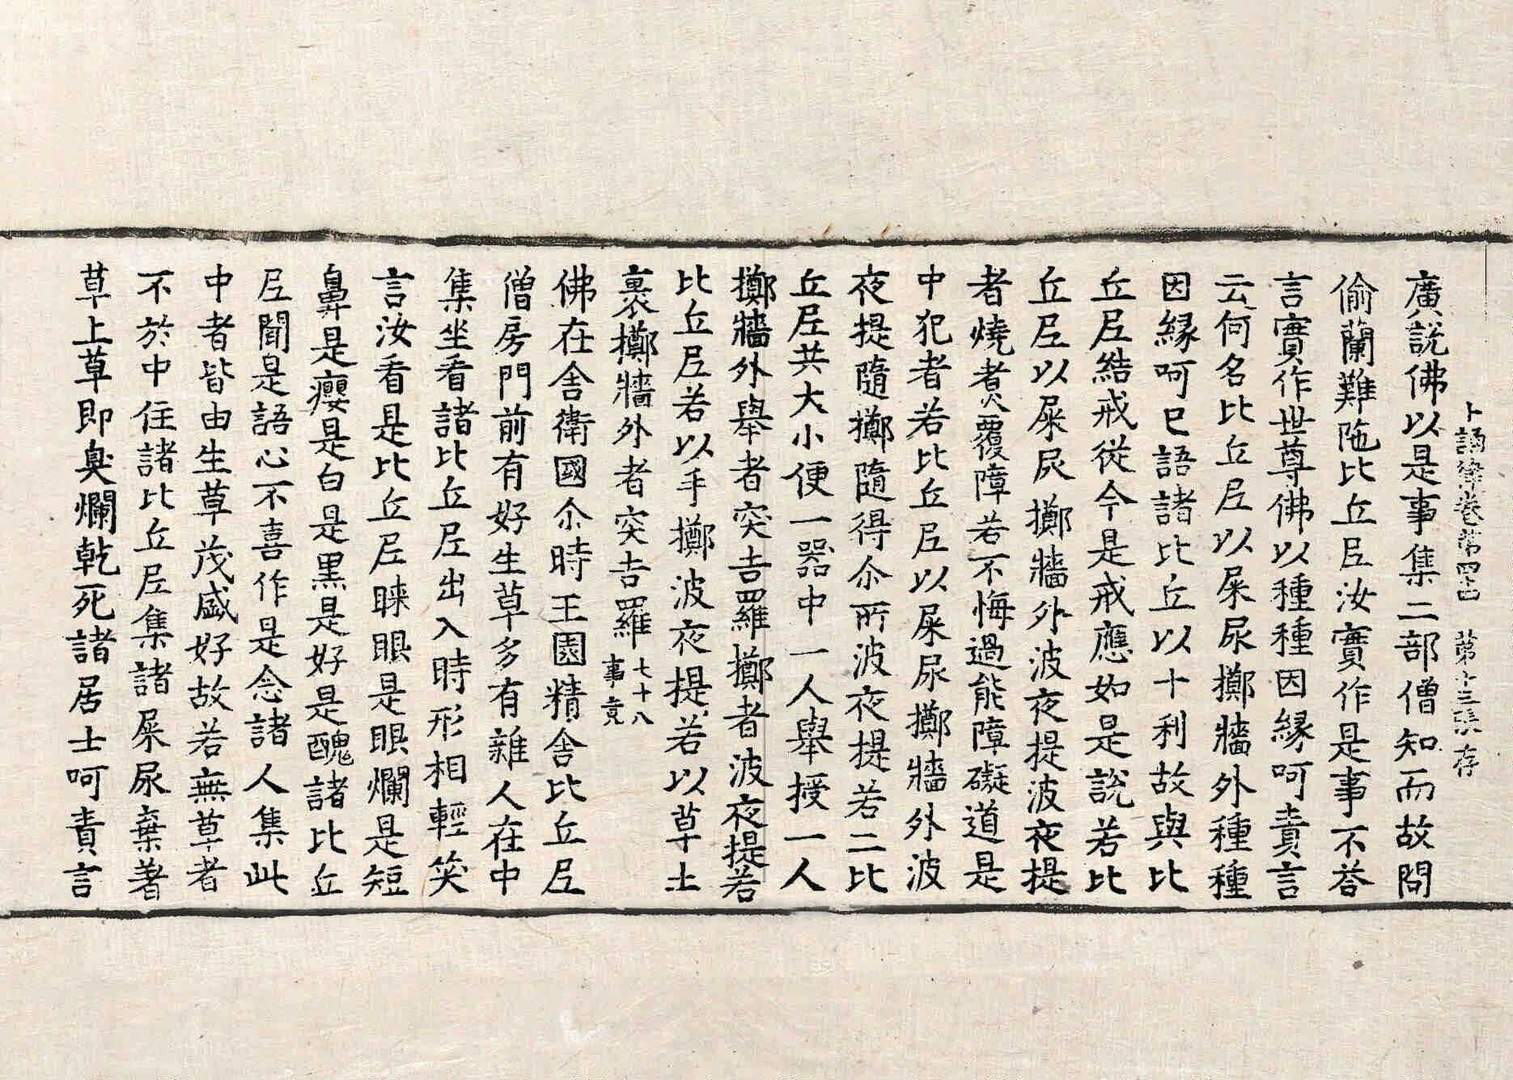 十誦律卷第四十七　第十三張　存
廣說佛以是事集二部僧知而故問
偷蘭難陁比丘尼汝實作是事不荅
言實作世尊佛以種種因緣呵責言
云何名比丘尼以屎尿擲牆外種種
因緣呵已語諸比丘以十利故與比
丘尼結戒從今是戒應如是說若比
丘尼以屎尿擲牆外波夜提波夜提
者燒煑覆障若不悔過能障礙道是
中犯者若比丘尼以屎尿擲牆外波
夜提隨擲隨得尒所波夜提若二比
丘尼共大小便一器中一人舉授一人
擲牆外舉者突吉羅擲者波夜提若
比丘尼若以手擲波夜提若以草土
裹擲牆外者突吉羅七十八事竟
佛在舍衛國尒時王園精舍比丘尼
僧房門前有好生草多有雜人在中
集坐看諸比丘尼出入時形相輕笑
言汝看是比丘尼睞眼是眼爛是短
鼻是癭是白是黑是好是醜諸比丘
尼聞是語心不喜作是念諸人集此
中者皆由生草茂盛好故若無草者
不於中住諸比丘尼集諸屎尿棄著
草上草即臭爛乾死諸居士呵責言